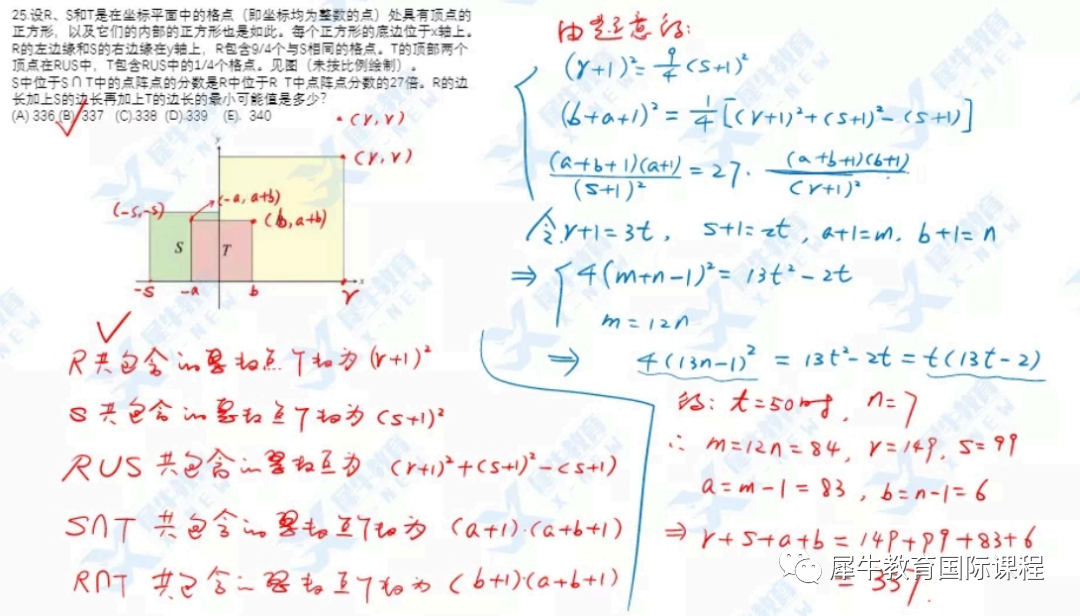 25.设R、S和T是在坐标平面中的格点（即坐标均为整数的点）处具有顶点的
正方形，以及它们的内部的正方形也是如此。每个正方形的底边位于x轴上。
R的左边缘和S的右边缘在y轴上，R包含9/4个与S相同的格点。T的顶部两个
顶点在RUS中，T包含RUS中的1/4个格点。见图（未按比例绘制）。
S中位于S∩T中的点阵点的分数是R中位于R T中点阵点分数的27倍。R的边
长加上S的边长再加上T的边长的最小可能值是多少?
(A) 336 (B) 337 (C).338 (D).339 (E). 340
(r,r)
y
(r,r)
(-a, a+b)
(-s,-s)
(b,a+b)
S
T
-s
-a
b
r
x
R共包含的 点个数为(r+1)²
S共包含的 点个数为(s+1)²
RUS 共包含的 为 (r+1)²+(s+1)²-(s+1)
S∩T 共包含的 点个数为 (a+1)·(a+b+1)
R∩T 共包含的 点个数为 (b+1)·(a+b+1)
由题意得:
(r+1)²=9/4(s+1)²
(b+a+1)²=1/4[(r+1)²+(s+1)²-(s+1)]
(a+b+1)(a+1)/(s+1)² = 27· (a+b+1)(b+1)/(r+1)²
令r+1=3t, s+1=2t, a+1=m, b+1=n
⇒ 4(m+n-1)²=13t²-2t
m=12n
⇒ 4(13n-1)²=13t²-2t=t(13t-2)
得: t=50时, n=7
∴ m=12n=84, r=149, s=99
a=m-1=83, b=n-1=6
⇒ r+s+a+b=149+99+83+6
=337.
犀牛教育国际课程
犀牛教育
X-NEW